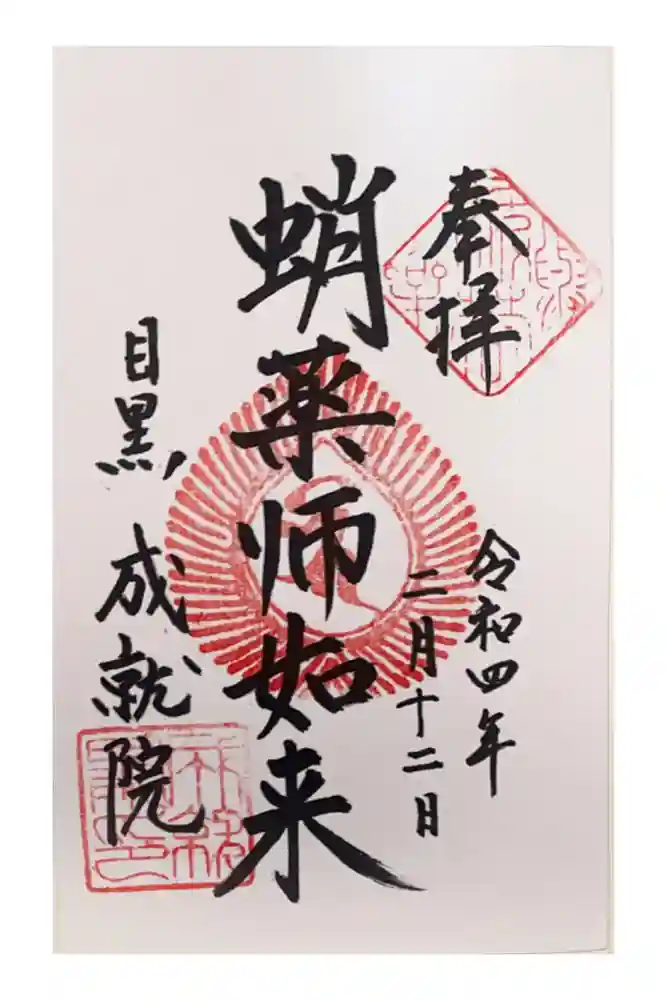 奉拝
令和四年
二月十二日
蛸薬師如来
目黒 成就院